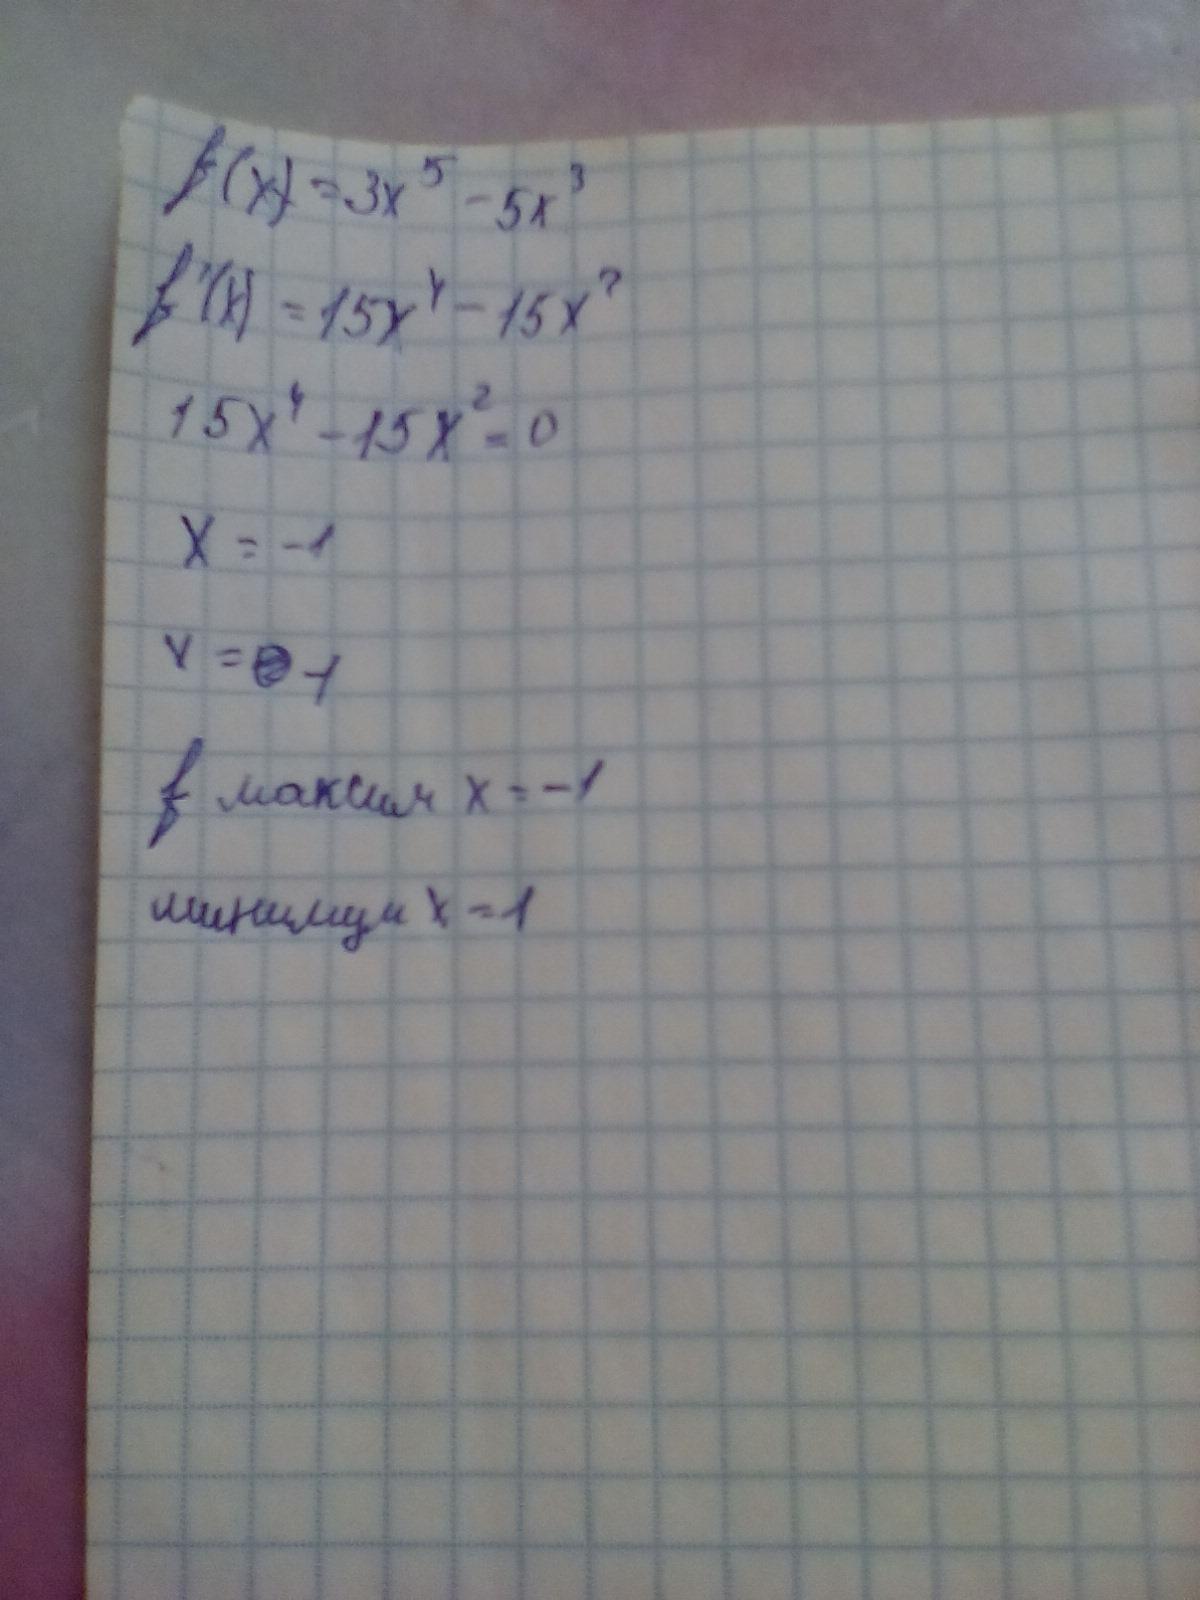 f(x) = 3x⁵ - 5x³
f'(x) = 15x⁴ - 15x²
15x⁴ - 15x² = 0
x = -1
x = -1
f максим x = -1
минимум x = 1